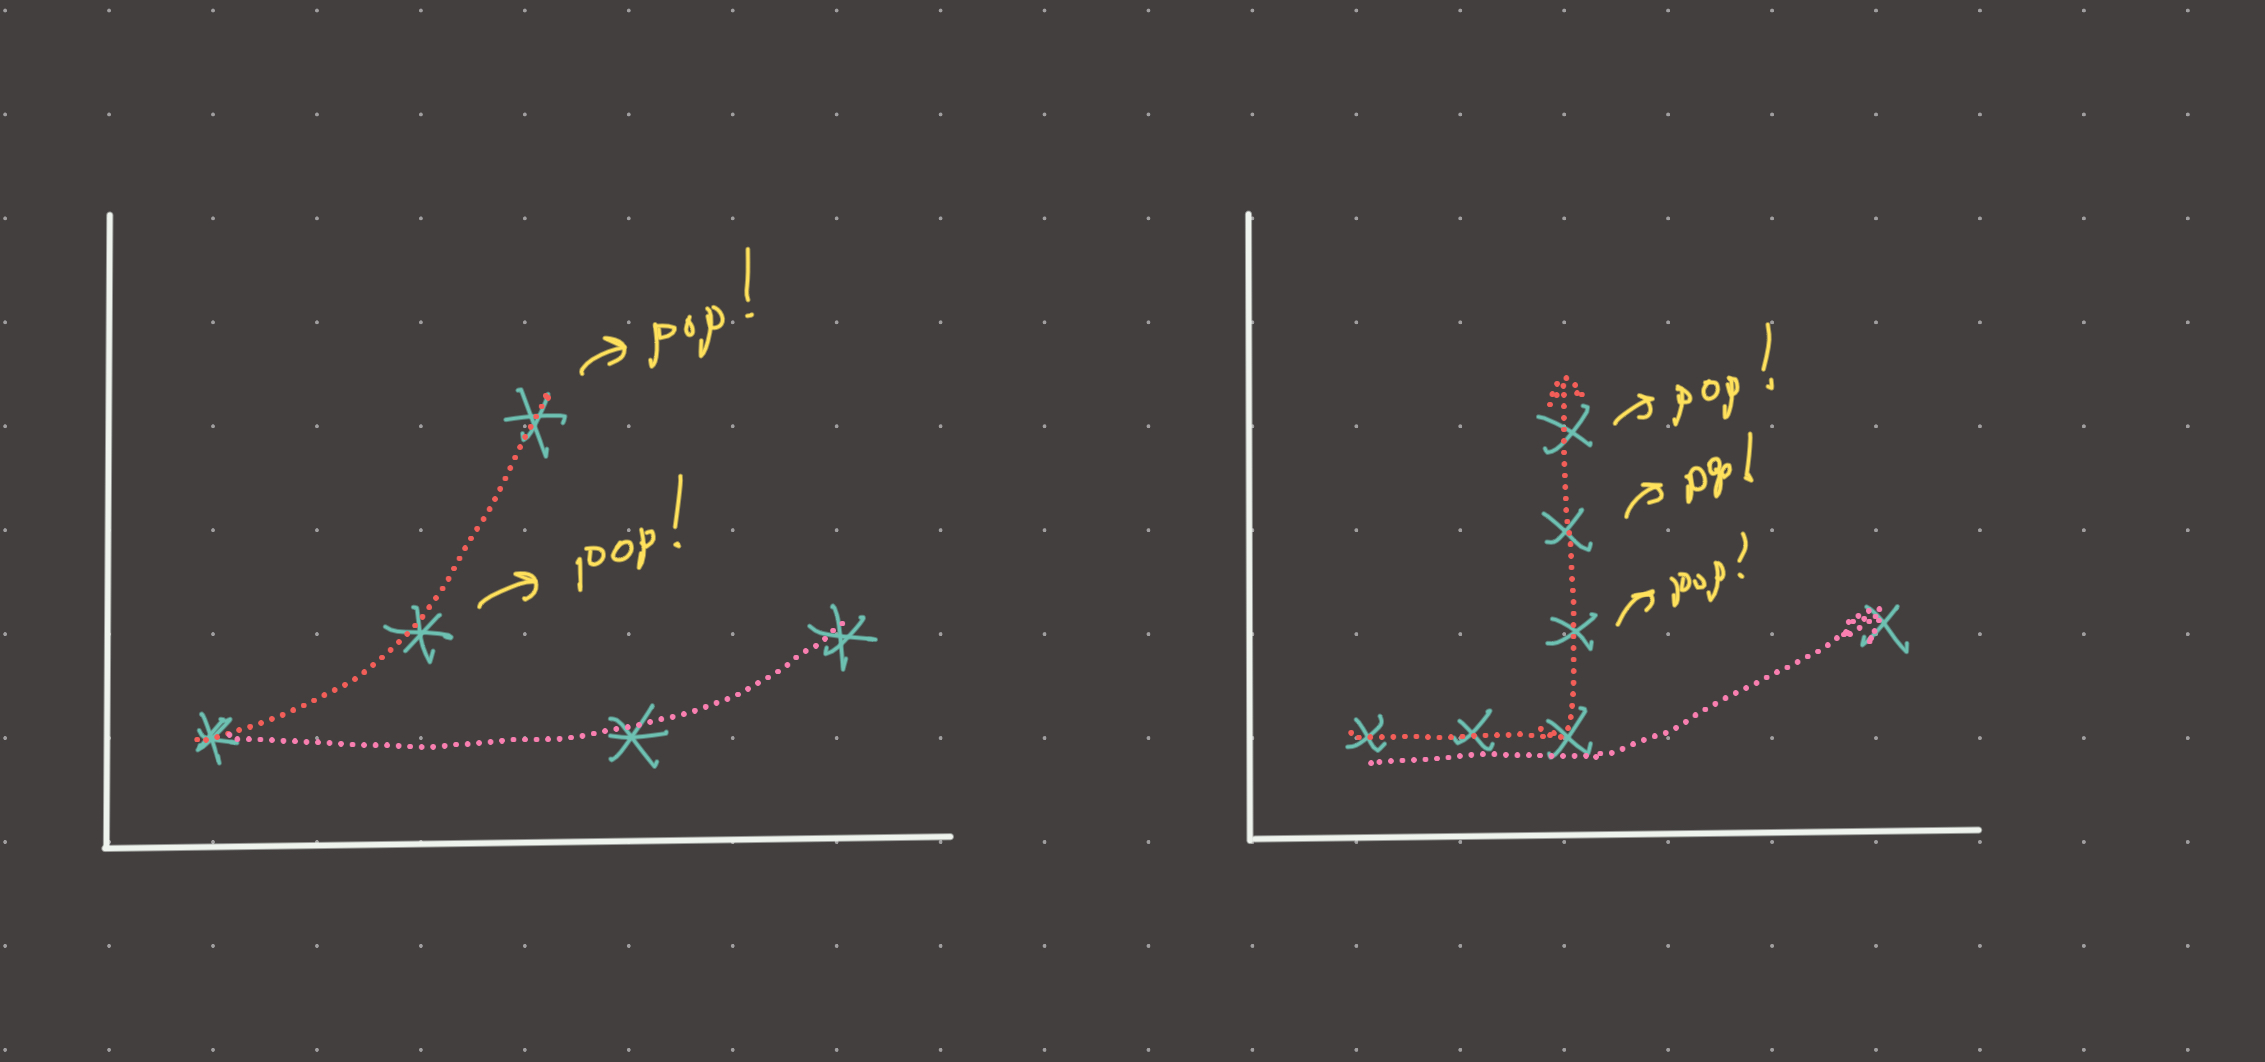 pop!
pop!
pop!
pop!
pop!